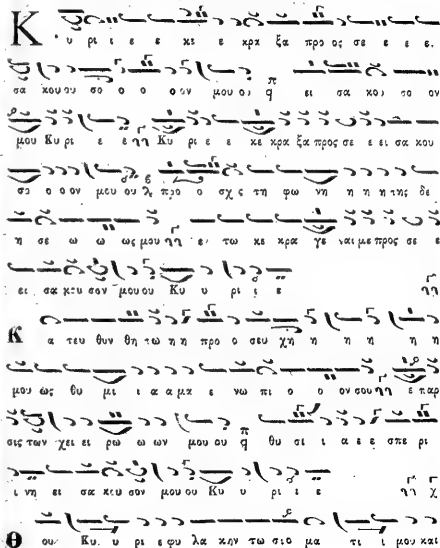 Κ υ ρι ε ε ε κε ε κρα ξα προ ος σε ε ε ε.
σα κου ου σο ο ο ον μου ου π q ει σα κου σο ον
μου Κυ ρι ε ε Κυ ρι ε ε κε κρα ξα προς σε ε ει σα κου
σο ο ο ον μου ου προ ο σχες τη φω νη η η η της δε
η σε ω ω ως μου ε τω κε κρα γε ναι με προς σε ε
ει σα κου σον μου ου Κυ υ ρι ε ε
Κ α τευ θυν θη τω η η προ ο σευ χη η η η η
μου ως θυ μι ι α α μα ε νω πι ο ο ον σου ε παρ
σις των χει ει ρω ω ων μου ου π q θυ σι ι α ε ε σπε ρι
ι νη ει σα κου σον μου ου Κυ υ ρι ε ε
Θ ου Κυ υ ρι ε φυ λα κην τω στο μα τι ι μου και